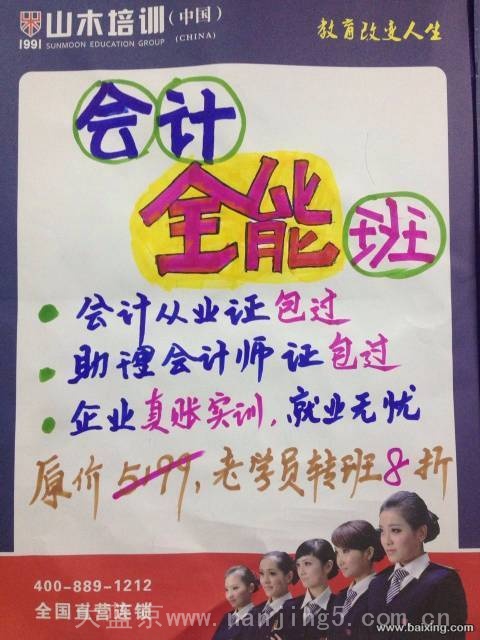 山木培训(中国)
1991 SUNMOON EDUCATION GROUP (CHINA)
教育改变人生
会计
全能班
会计从业证包过
助理会计师证包过
企业真账实训,就业无忧
原价5199,老学员转班8折
400-889-1212
全国直营连锁
www.nanjing5.com.cn
www.baixing.com